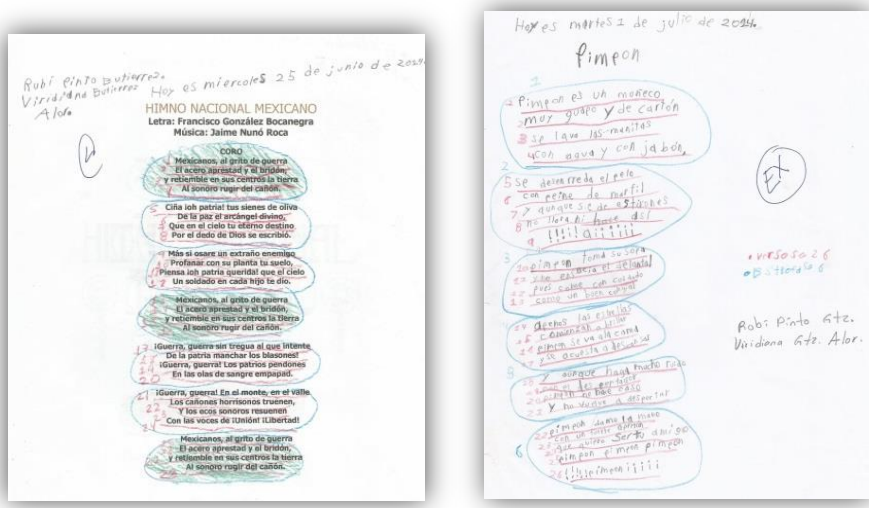 Robi Pinto Gutierrez.
Viridiana Gutierrez
Alor.
Hoy es miercoles 25 de junio de 2014.
HIMNO NACIONAL MEXICANO
Letra: Francisco González Bocanegra
Música: Jaime Nunó Roca
CORO
Mexicanos, al grito de guerra
El acero aprestad y el bridón,
y retiemble en sus centros la tierra
Al sonoro rugir del cañón.
Ciña ¡oh patria! tus sienes de oliva
De la paz el arcángel divino,
Que en el cielo tu eterno destino
Por el dedo de Dios se escribió.
Más si osare un extraño enemigo
Profanar con su planta tu suelo,
Piensa ¡oh patria querida! que el cielo
Un soldado en cada hijo te dio.
Mexicanos, al grito de guerra
El acero aprestad y el bridón,
y retiemble en sus centros la tierra
Al sonoro rugir del cañón.
¡Guerra, guerra sin tregua al que intente
De la patria manchar los blasones!
¡Guerra, guerra! Los patrios pendones
En las olas de sangre empapad.
¡Guerra, guerra! En el monte, en el valle
Los cañones horrísonos truenen,
Y los ecos sonoros resuenen
Con las voces de ¡Unión! ¡Libertad!
Mexicanos, al grito de guerra
El acero aprestad y el bridón,
y retiemble en sus centros la tierra
Al sonoro rugir del cañón.
Hoy es martes 1 de julio de 2014.
Pimpon
1
Pimpon es un moñeco
2 muy guapo y de carton
3 se lava las manitas
4 con agua y con jabón,
2
5 Se desenreda el pelo
6 con peine de marfil
7 y aunque se de estirones
8 no llora ni hace así
9
3
pimpon toma su sopa
4
pimpon se va a la cama
y se acuesta a descansar
5
y aunque haga mucho ruido
Y no vuelve a despertar
6
pimpon dame la mano
que quiero ser tu amigo
pimpon pimpon pimpon
EX
versos 26
Estrofas 6
Robi Pinto Gtz.
Viridiana Gtz. Alor.